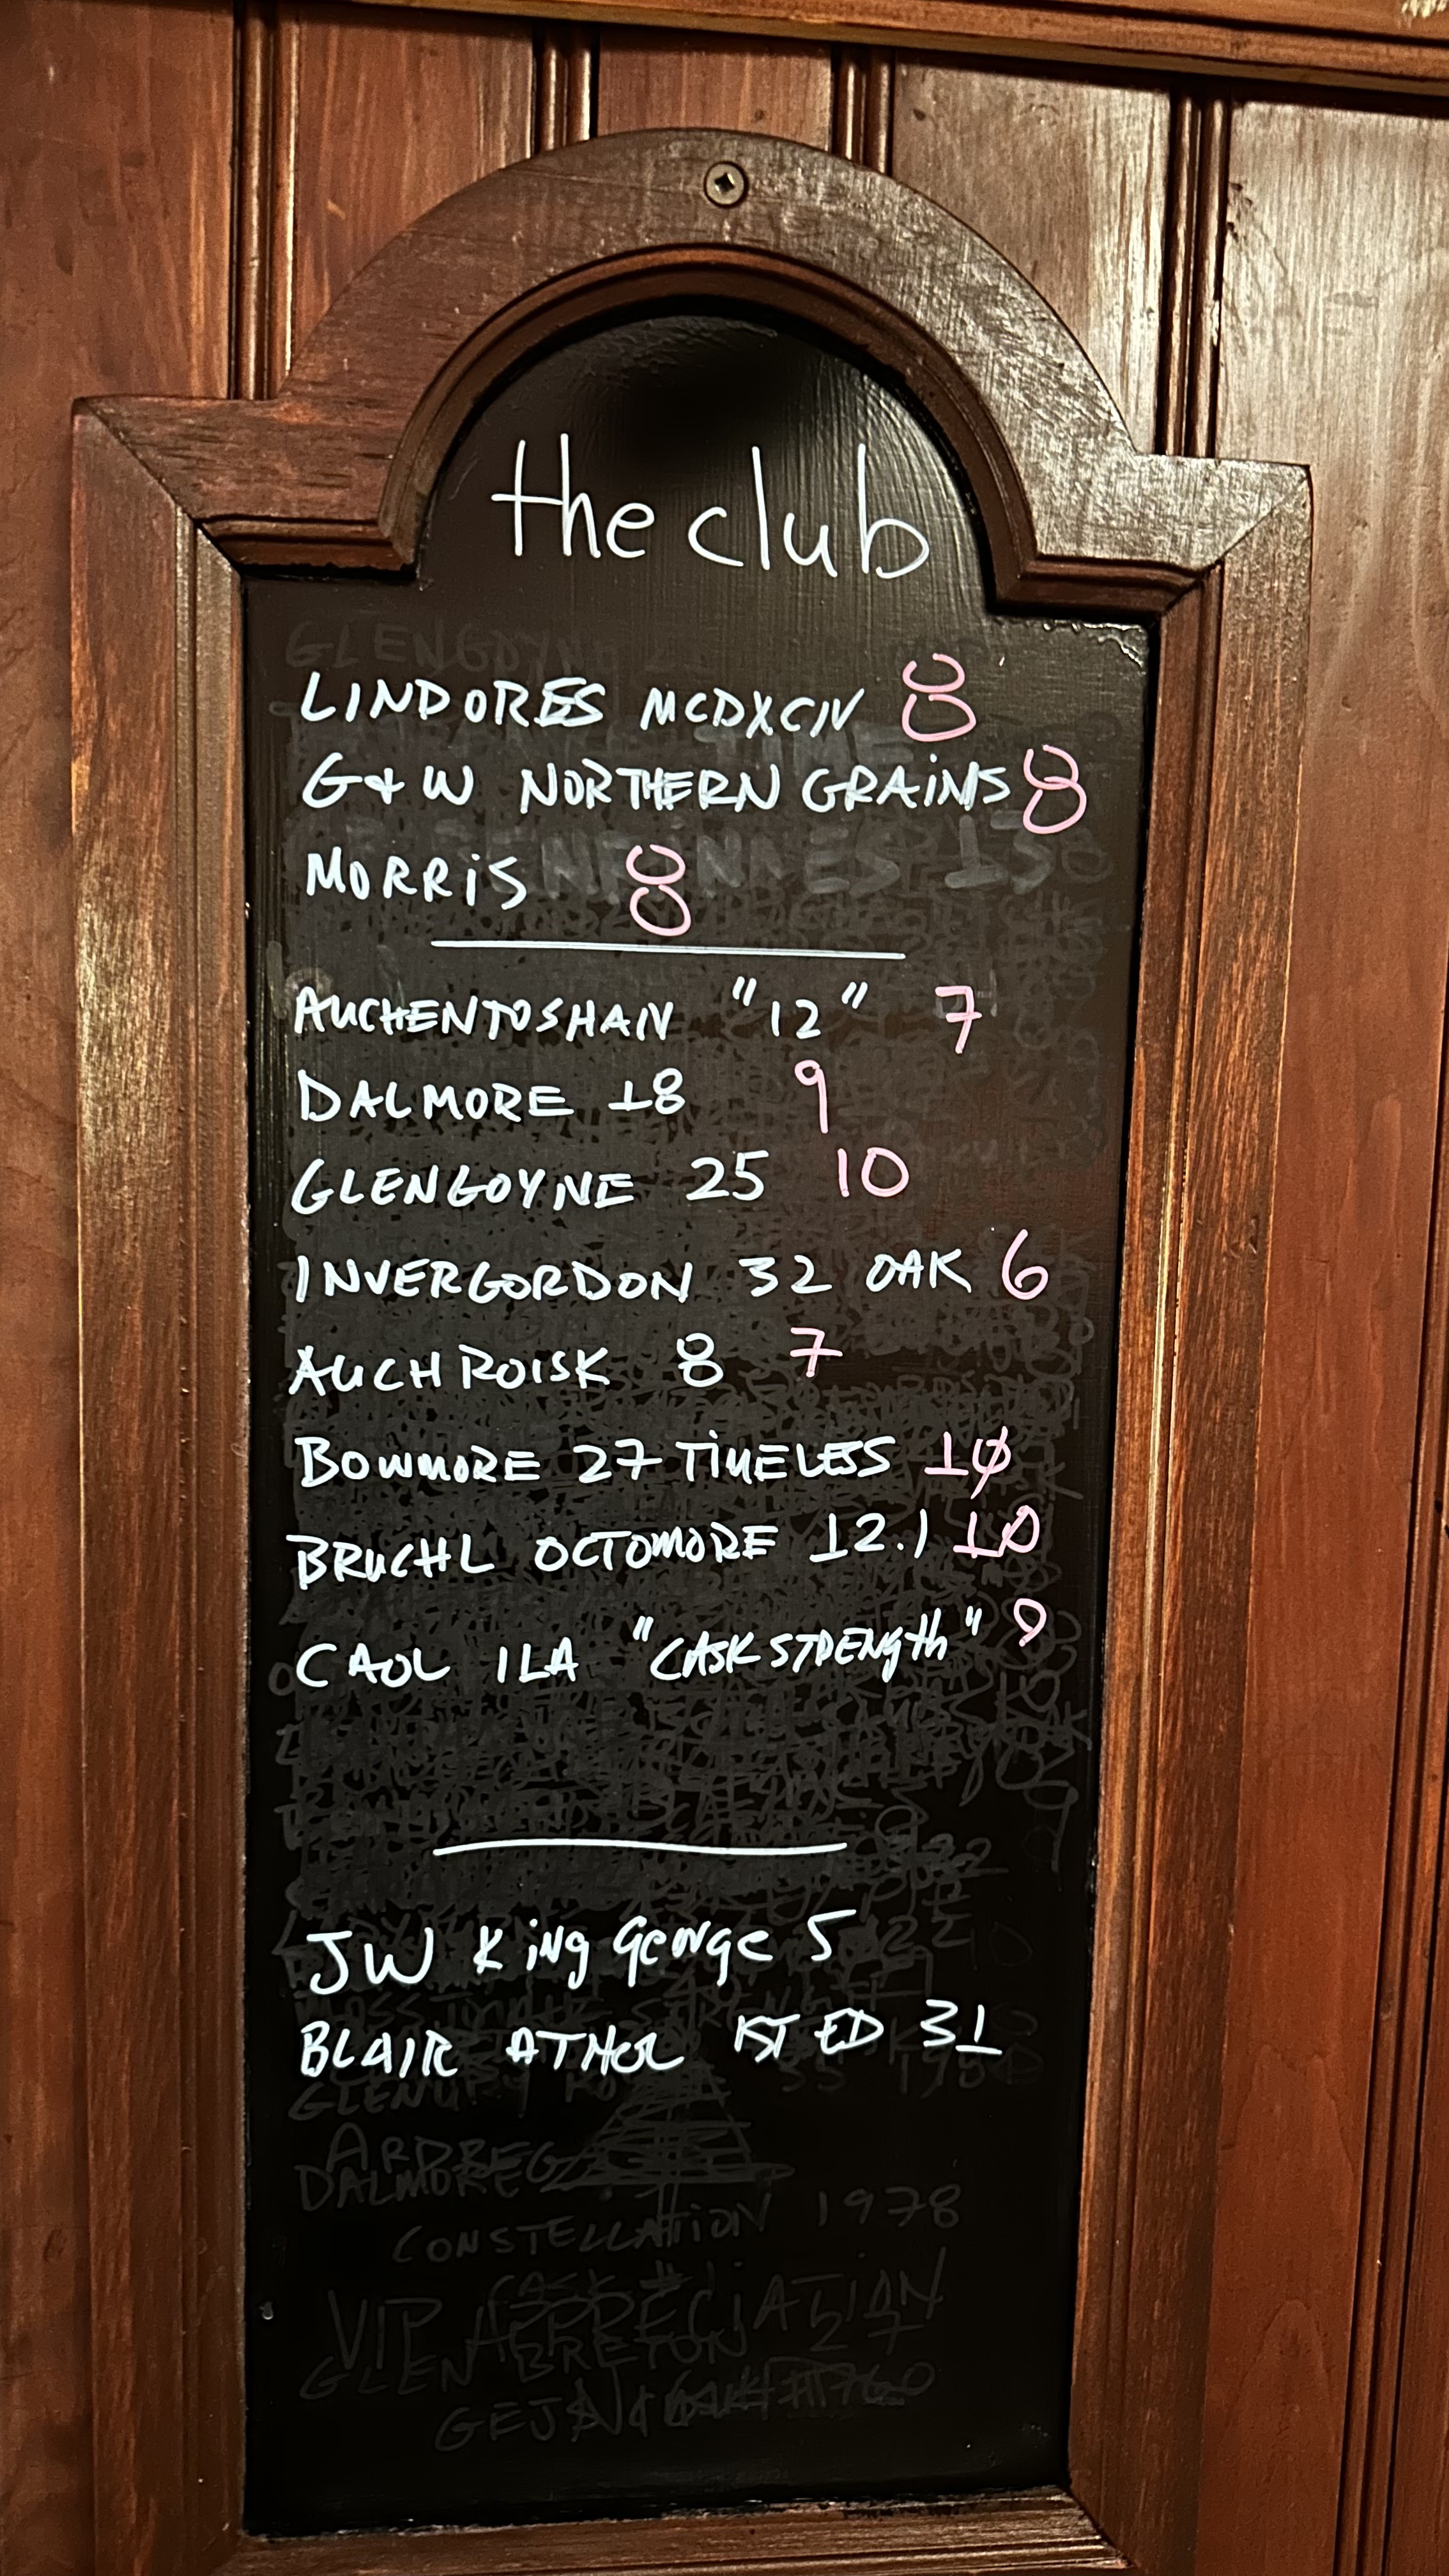 the club
LINDORES MCDXCIV 8
G+W NORTHERN GRAINS 8
MORRiS 8
AUCHENTOSHAN "12" 7
DALMORE 18 9
GLENGOYNE 25 10
INVERGORDON 32 OAK 6
AUCHROISK 8 7
BOWMORE 27 TiMELESS 10
BRUCHL OCTOMORE 12.1 10
CAOL ILA "CASK STRENgth" 9
JW King George 5
BLAIR ATHOL 1ST ED 31
ARDBEG
DALMORE
CONSTELLATiON 1978
CASK #1
VIP APPRECIATION
GLEN BRETON 27